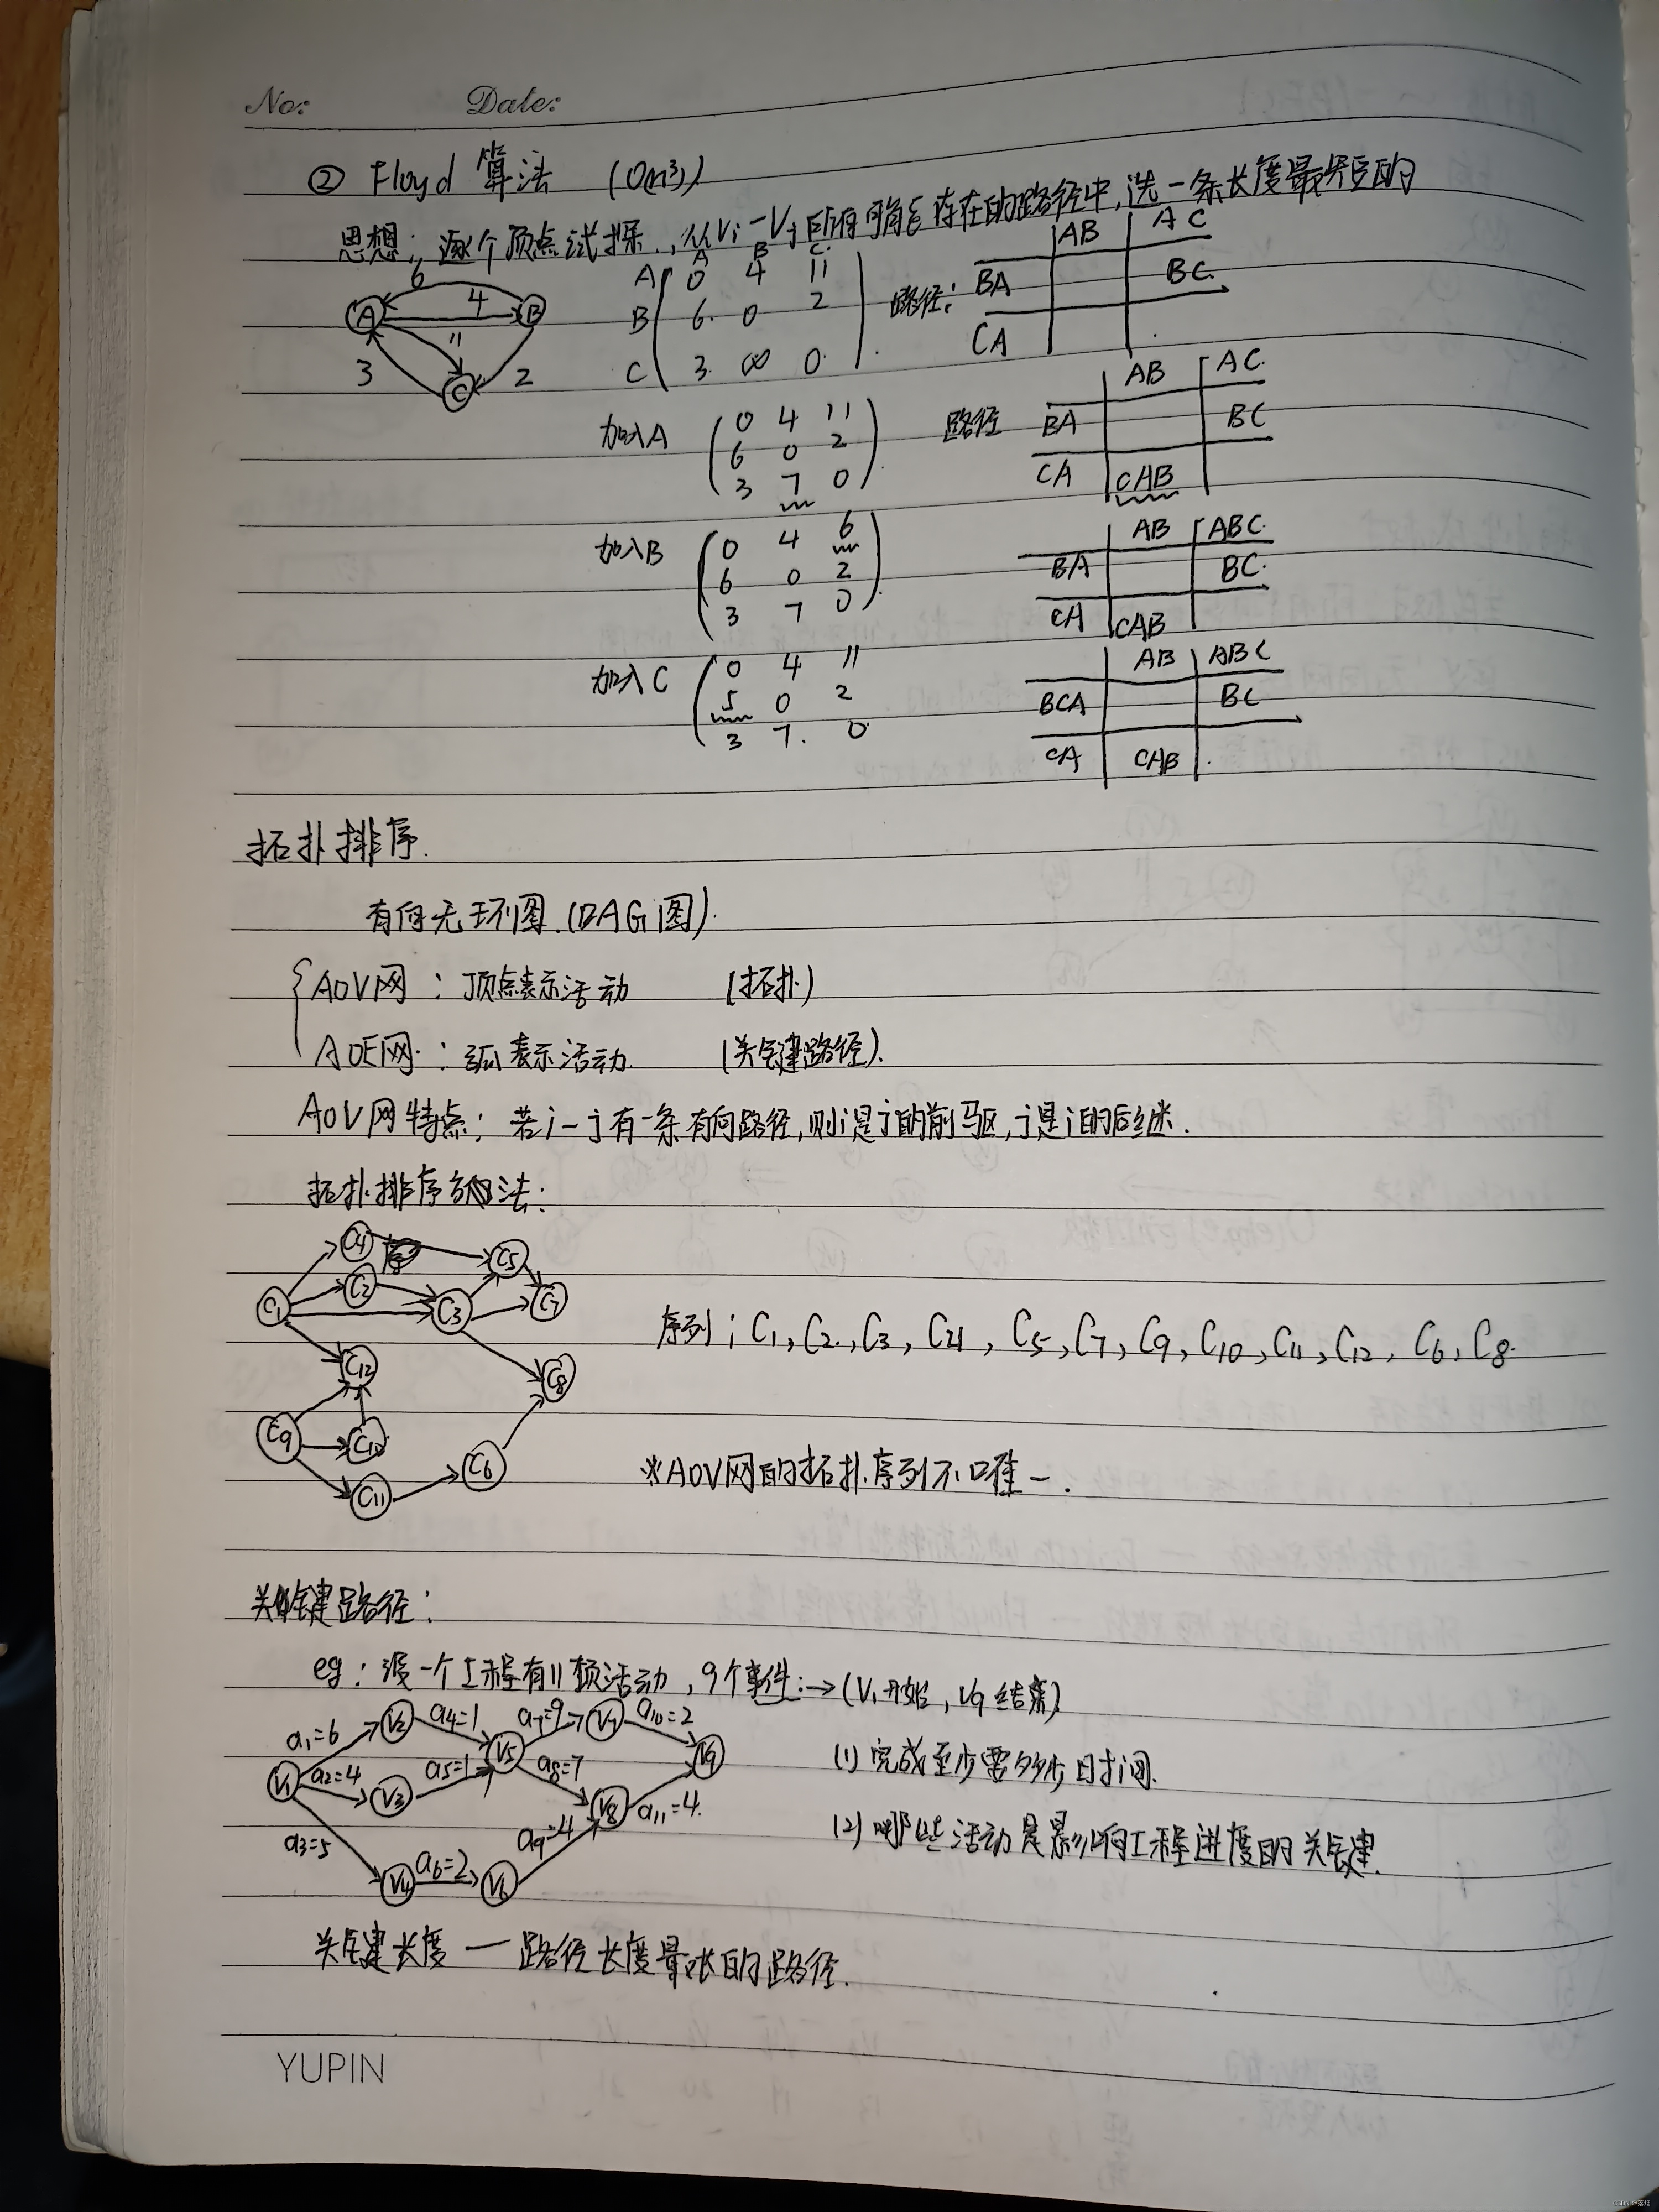 No: Date:
② Floyd 算法 (O(n³))
思想: 逐个顶点试探, 从Vi-Vj所有可能存在的路径中,选一条长度最短的
A B C
6 4 11 3 2
A B C
A 0 4 11
B 6 0 2
C 3 ∞ 0
路径:
AB AC
BA BC
CA
加入A
0 4 11
6 0 2
3 7 0
路径
AB AC
BA BC
CA CAB
加入B
0 4 6
6 0 2
3 7 0
AB ABC
BA BC
CA CAB
加入C
0 4 11
5 0 2
3 7 0
AB ABC
BCA BC
CA CAB
拓扑排序.
有向无环图.(DAG图).
AOV网: 顶点表示活动 (拓扑)
AOE网: 弧表示活动. (关键路径).
AOV网特点: 若i-j有一条有向路径,则i是j的前驱,j是i的后继.
拓扑排序 法:
C4 C5
C2
C1 C3 C7
序列: C1, C2, C3, C4, C5, C7, C9, C10, C11, C12, C6, C8.
C12 C8
C9 C10 C6
C11
※AOV网的拓扑序列不唯一.
关键路径:
eg: 设一个工程有11项活动,9个事件:→(V1开始, V9结束)
a1=6 V2 a4=1 a7=9 V7 a10=2
V1 a2=4 V3 a5=1 V5 a8=7 V8 a11=4 V9
a3=5 V4 a6=2 V6 a9=4
(1) 完成至少要多少时间.
(2) 哪些活动是影响工程进度的关键.
关键长度 — 路径长度最长的路径.
YUPIN
CSDN @落烟